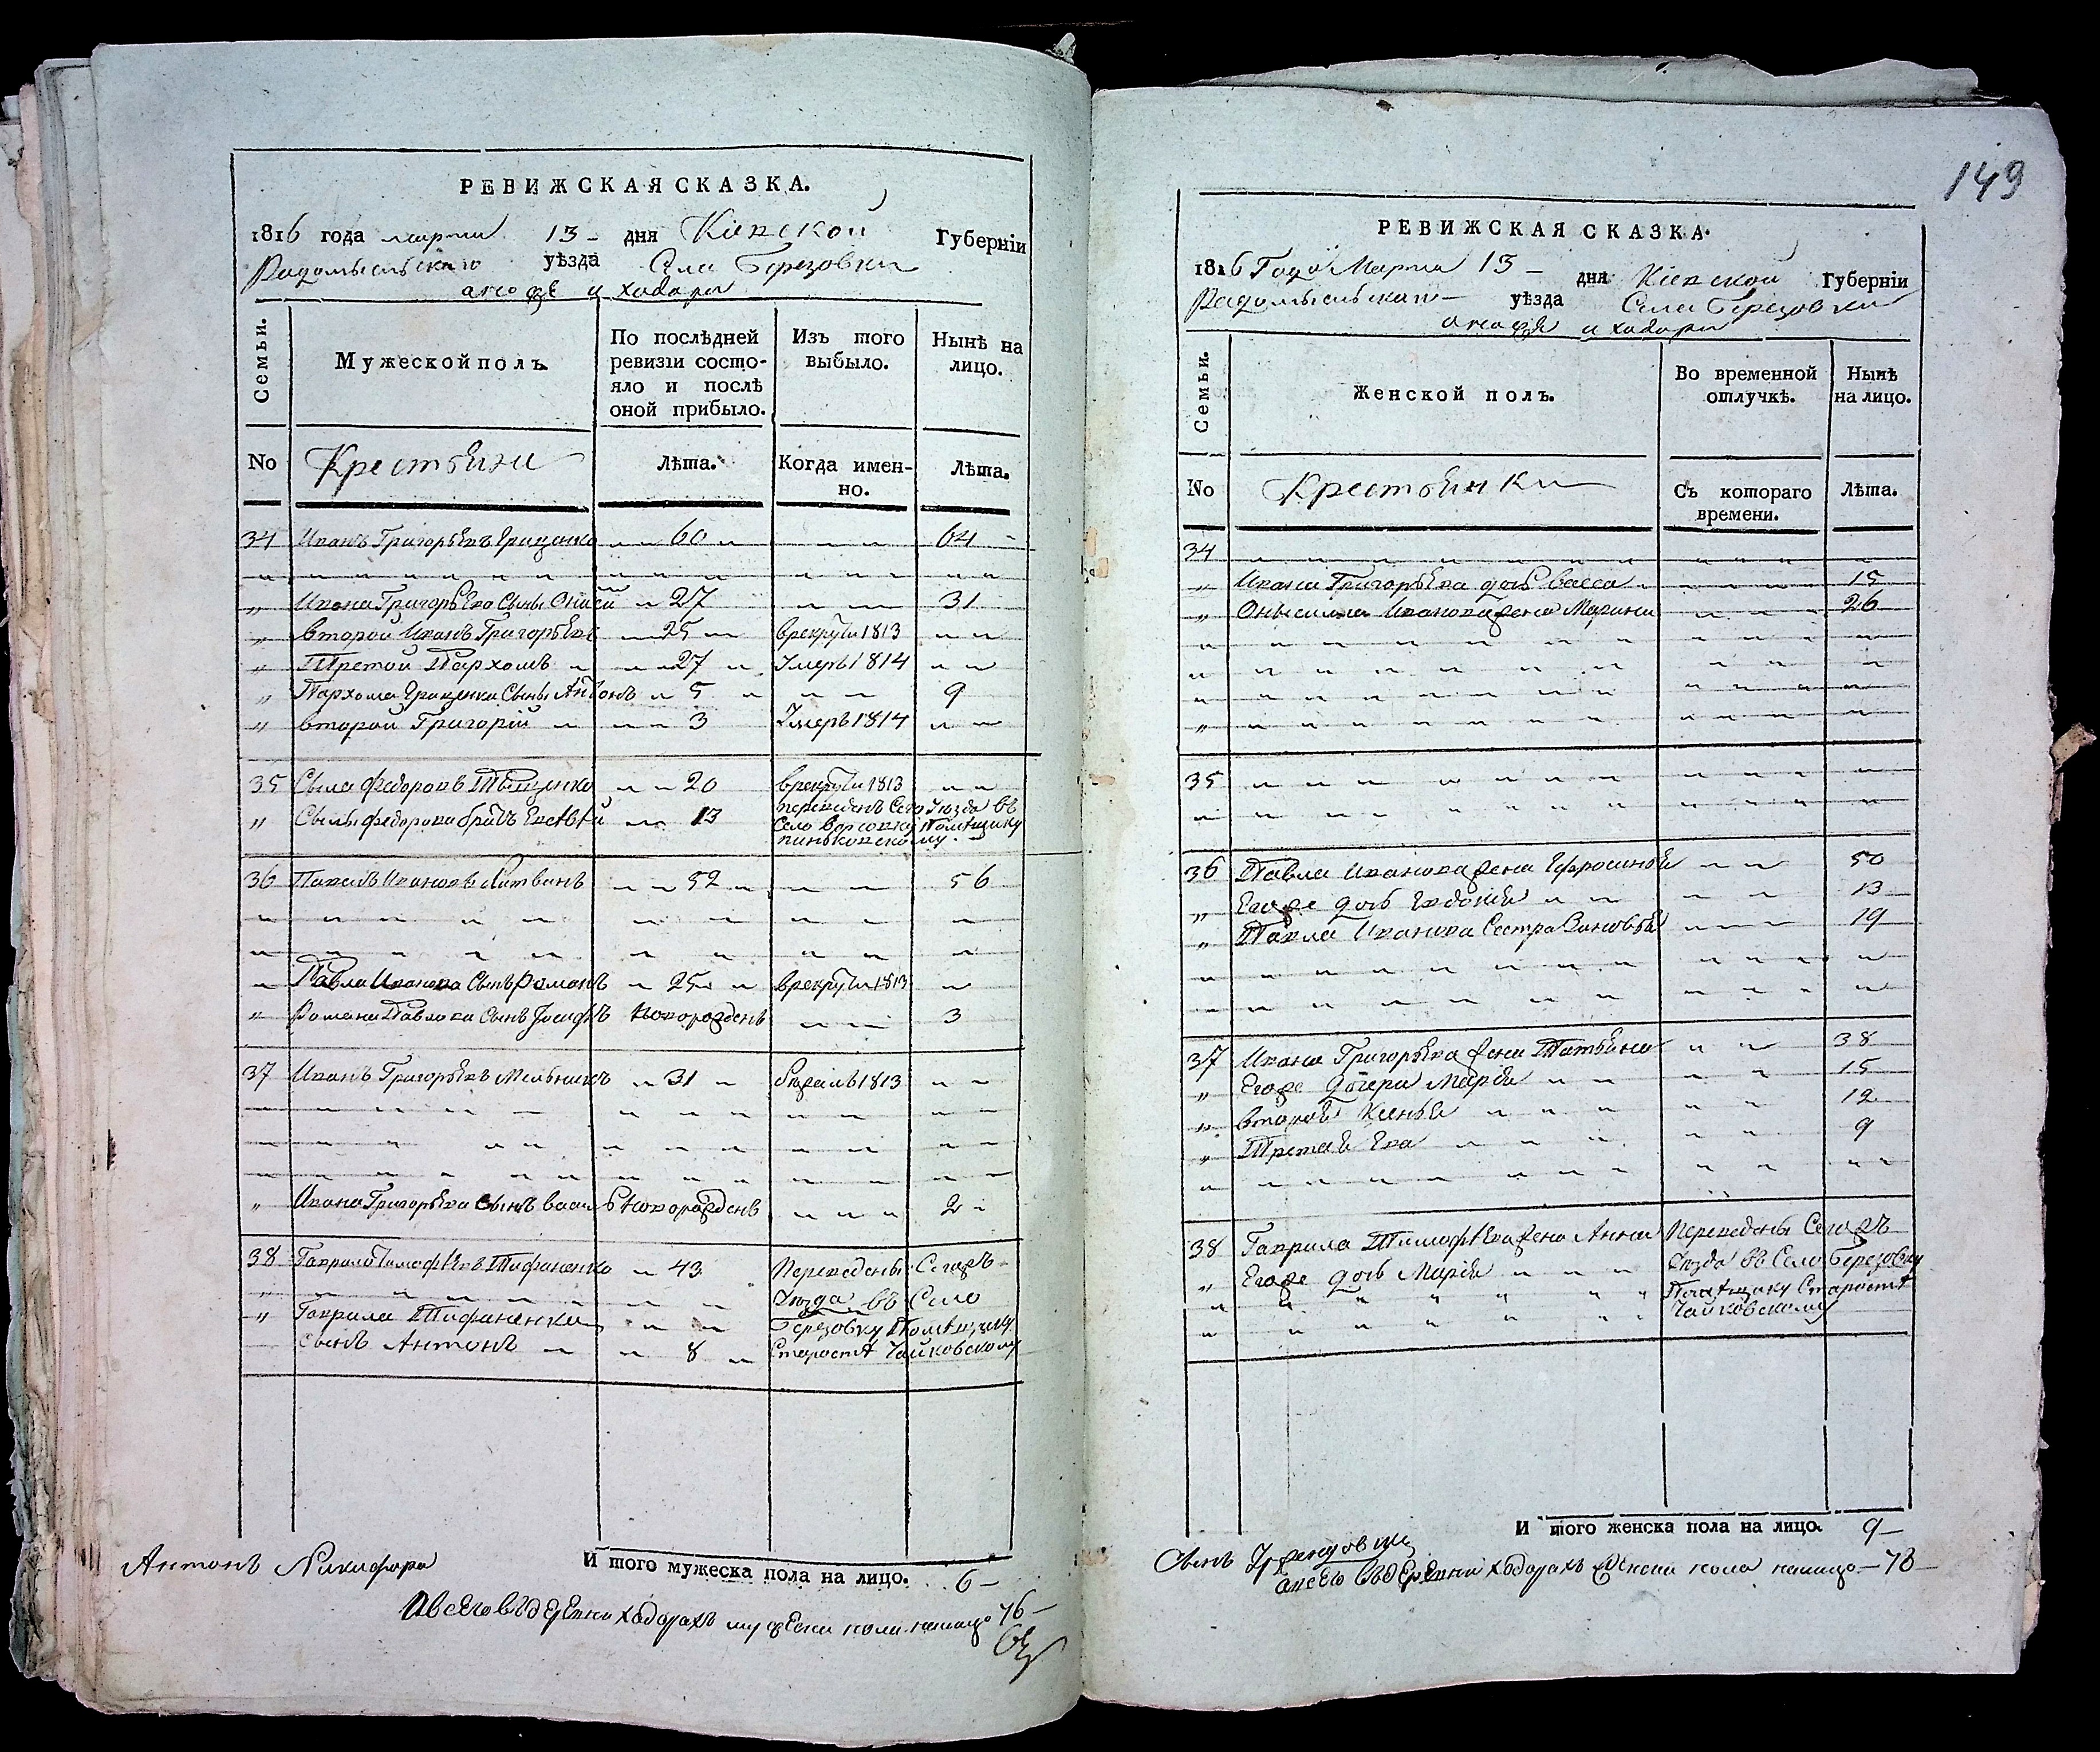 РЕВИЖСКАЯ СКАЗКА.
1816 года марта 13 - дня Кіевской Губерніи
Радомысльскаго уѣзда Села Березовки
а ходоры
Семьи.
Мужеской полъ.
По послѣдней ревизіи состояло и послѣ оной прибыло.
Изъ того выбыло.
Нынѣ на лицо.
No Крестьяни Лѣта. Когда именно. Лѣта.
34 Иванъ Григорьевъ Гриценко 60 64
Ивана Григорьева Сыны 27 31
второй Иванъ Григорьевъ 25 в рекруты 1813
Третой Пархомъ 27 Умеръ 1814
Пархома Гриценка Сыны Антонъ 5 9
второй Григорій 3 Умеръ 1814
35 Сыла Федоровъ 20 в рекруты 1813
Сылы Федорова братъ Евсѣвѣй 13 переведенъ Сего уѣзда въ
Село помѣщику
пиньковскому
36 Павелъ Ивановъ Литвинъ 52 56
Павла Иванова Сынъ Романъ 25 в рекруты 1813
Романа Павлова Сынъ Іосифъ новорожденъ 3
37 Иванъ Григорьевъ Мельникъ 31 бѣжалъ 1813
Ивана Григорьева Сынъ василь новорожденъ 2
38 Гаврило Тимофѣевъ Тифаненко 43 Переведены Сегожъ
уѣзда въ Село
Гаврила Тифаненки Березовку Помѣщику
Сынъ Антонъ 8 Старостѣ Чайковскому
И того мужеска пола на лицо. 6 -
Антонъ Никифора
а всего въ деревни ходорахъ мужеска пола налицо 76 -
149
РЕВИЖСКАЯ СКАЗКА.
1816 Года Марта 13 - дня Кіевской Губерніи
Радомысльскаго уѣзда Села Березовки
а ходоры
Семьи.
Женской полъ.
Во временной отлучкѣ.
Нынѣ на лицо.
No Крестьянки Съ котораго времени. Лѣта.
34
Ивана Григорьева дочь васса 15
Онысима Иванова жена Марина 26
35
36 Павла Иванова жена Ефросинья 50
Егоже дочь Евдокія 13
Павла Иванова Сестра Зиновья 19
37 Ивана Григорьева жена Татьяна 38
Егоже дочери Марья 15
вторая Ксенья 12
Третая Ева 9
38 Гаврила Тимофѣева жена Анна Переведены Сегожъ
Егоже дочь Марья уѣзда въ Село Березовку
Помѣщику Старостѣ
Чайковскому
И того женска пола на лицо. 9 -
Сынъ
а всего въ деревни ходорахъ женска пола налицо - 78 -